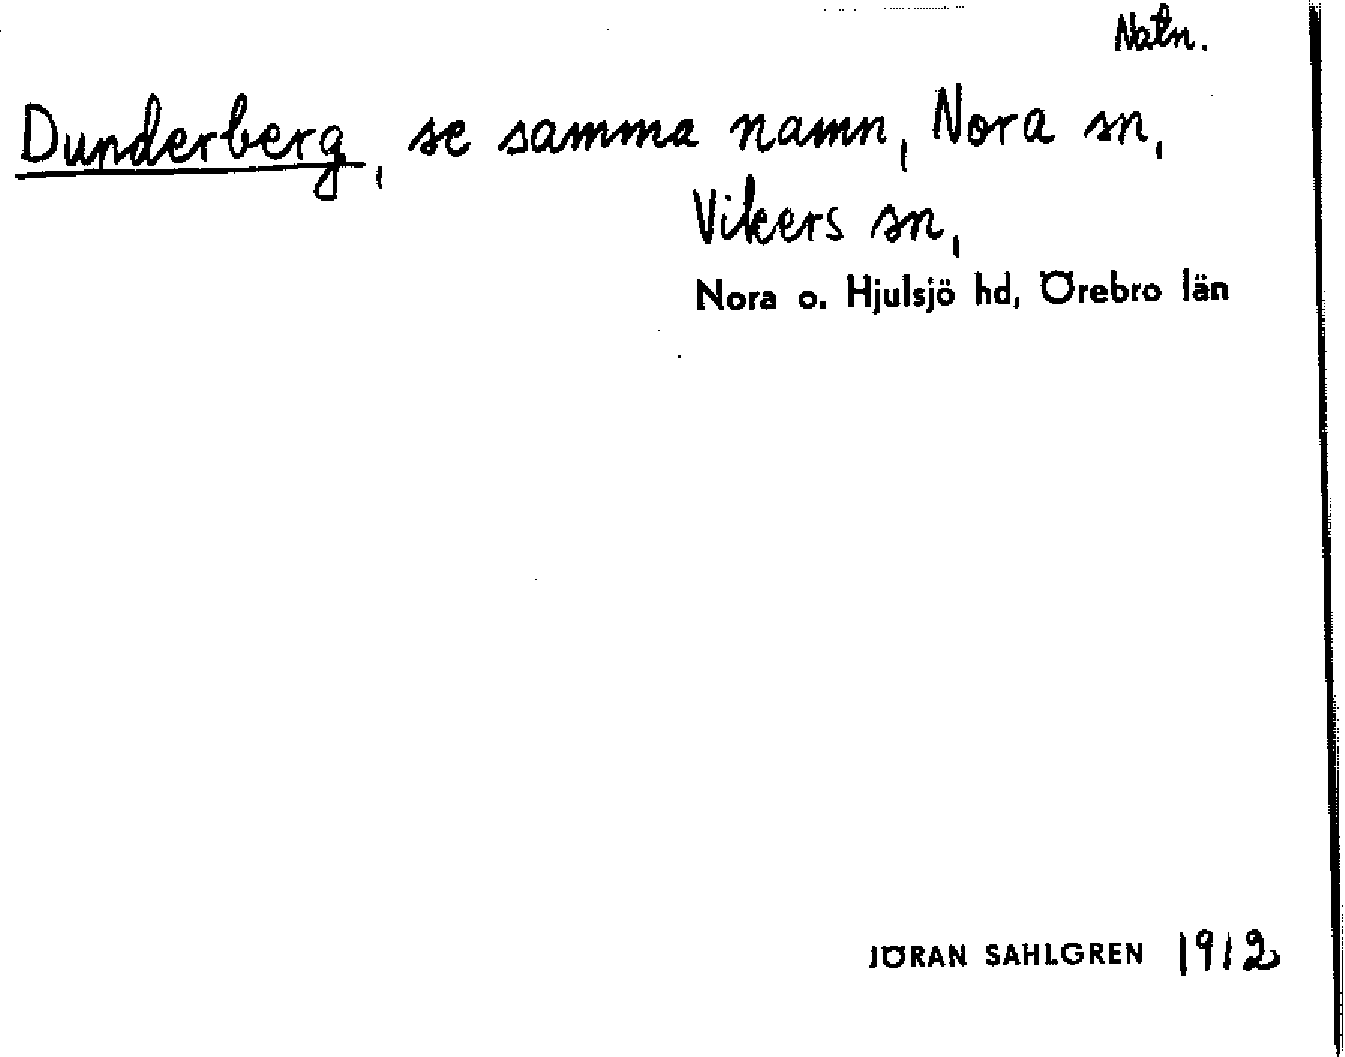 Natn.
Dunderberg, se samma namn, Nora sn,
Vikers sn,
Nora o. Hjulsjö hd, Örebro län
JÖRAN SAHLGREN 1912